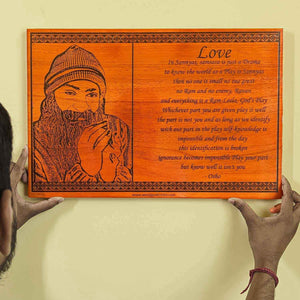 Love
In Sannyas, samsara is just a Drama
to know the world as a Play is Sannyas
then no one is small no one great
no Ram and no enemy Ravan
and everything is a Ram Leela-God's Play
Whichever part you are given play it well
the part is not you and as long as you identify
with our part in the play self-knowledge is
impossible and from the day
this identification is broken
ignorance becomes impossible Play your part
but know well it isn't you
Osho